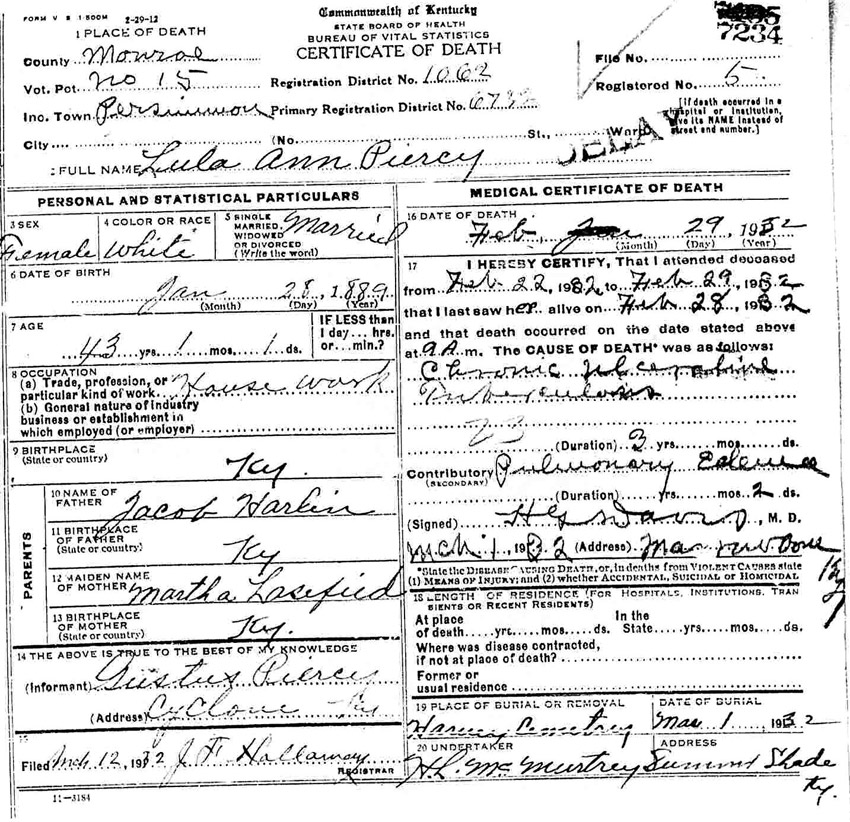 FORM V S 1 500M 2-29-12
Commonwealth of Kentucky
STATE BOARD OF HEALTH
BUREAU OF VITAL STATISTICS
CERTIFICATE OF DEATH
7234
1 PLACE OF DEATH
County Monroe
Vot. Pct. No 15
Inc. Town Persimmon
City
Registration District No. 1062
Primary Registration District No. 6732
(No. St., Ward)
File No.
Registered No. 5
[If death occurred in a
hospital or institution,
give its NAME instead of
street and number.]
DELAY
2 FULL NAME Lula Ann Piercy
PERSONAL AND STATISTICAL PARTICULARS
3 SEX
Female
4 COLOR OR RACE
White
5 SINGLE
MARRIED,
WIDOWED
OR DIVORCED
(Write the word)
Married
6 DATE OF BIRTH
Jan 28, 1889
(Month) (Day) (Year)
7 AGE
43 yrs. 1 mos. 1 ds.
IF LESS than
1 day... hrs.
or... min.?
8 OCCUPATION
(a) Trade, profession, or
particular kind of work House work
(b) General nature of industry
business or establishment in
which employed (or employer)
9 BIRTHPLACE
(State or country)
Ky.
PARENTS
10 NAME OF
FATHER
Jacob Harlin
11 BIRTHPLACE
OF FATHER
(State or country)
Ky
12 MAIDEN NAME
OF MOTHER
Martha Lasefied
13 BIRTHPLACE
OF MOTHER
(State or country)
Ky.
14 THE ABOVE IS TRUE TO THE BEST OF MY KNOWLEDGE
(Informant) Gustus Piercy
(Address) Cyclone Ky
15
Filed Mch 12, 1932 J F Hallaway
REGISTRAR
11-3184
MEDICAL CERTIFICATE OF DEATH
16 DATE OF DEATH
Feb, 29, 1932
(Month) (Day) (Year)
17 I HEREBY CERTIFY, That I attended deceased
from Feb 22, 1932 to Feb 29, 1932
that I last saw her alive on Feb 28, 1932
and that death occurred on the date stated above
at 9 A.m. The CAUSE OF DEATH* was as follows:
Chronic
Tuberculosis
23
(Duration) 3 yrs. mos. ds.
Contributory Pulmonary Edema
(SECONDARY)
(Duration) yrs. mos. 2 ds.
(Signed) Davis, M. D.
Mch 1, 1932 (Address)
*State the DISEASE CAUSING DEATH, or, in deaths from VIOLENT CAUSES state
(1) MEANS OF INJURY; and (2) whether ACCIDENTAL, SUICIDAL or HOMICIDAL
18 LENGTH OF RESIDENCE (FOR HOSPITALS, INSTITUTIONS, TRAN
SIENTS OR RECENT RESIDENTS)
At place In the
of death yrs. mos. ds. State yrs. mos. ds.
Where was disease contracted,
if not at place of death?
Former or
usual residence
19 PLACE OF BURIAL OR REMOVAL
Harvey Cemetrey
DATE OF BURIAL
Mar 1, 1932
20 UNDERTAKER
H.L. McMurtrey
ADDRESS
Summer Shade
Ky.